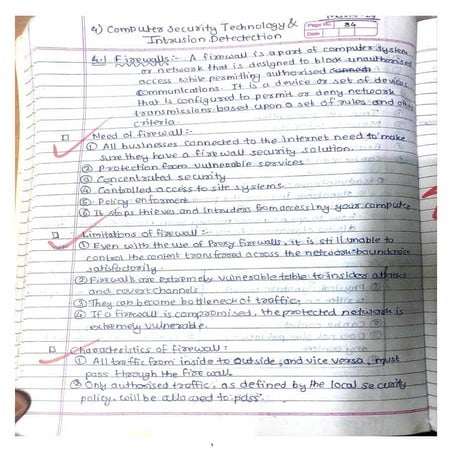 4) Computer Security Technology &
Intrusion Detedection
Page No. 34
Date
4.1 Firewalls:- A firewall is a part of computer system
or network that is designed to block unauthorised
access while permitting authorised
communications. It is a device or set of devices
that is configured to permit or deny network
transmissions based upon a set of rules and other
criteria.
Need of firewall:-
① All businesses connected to the internet need to make
sure they have a firewall security solution.
② Protection from vulnerable services
③ Concentrated security
④ Controlled access to site systems.
⑤ Policy enforment
⑥ It stops thieves and intruders from accessing your computer
Limitations of firewall:-
① Even with the use of Proxy firewalls, it is still unable to
control the content transfored across the network boundaries
satisfactorily
② Firewalls are extremely vulnerable to insider attacks
and covert channels
③ They can become bottleneck of traffic.
④ If a firewall is compromised, the protected network is
extremely vulnerable.
Characteristics of firewall:
① All traffic from inside to outside, and vice versa, must
pass through the firewall.
② Only authorised traffic, as defined by the local security
policy, will be allowed to pass.
1